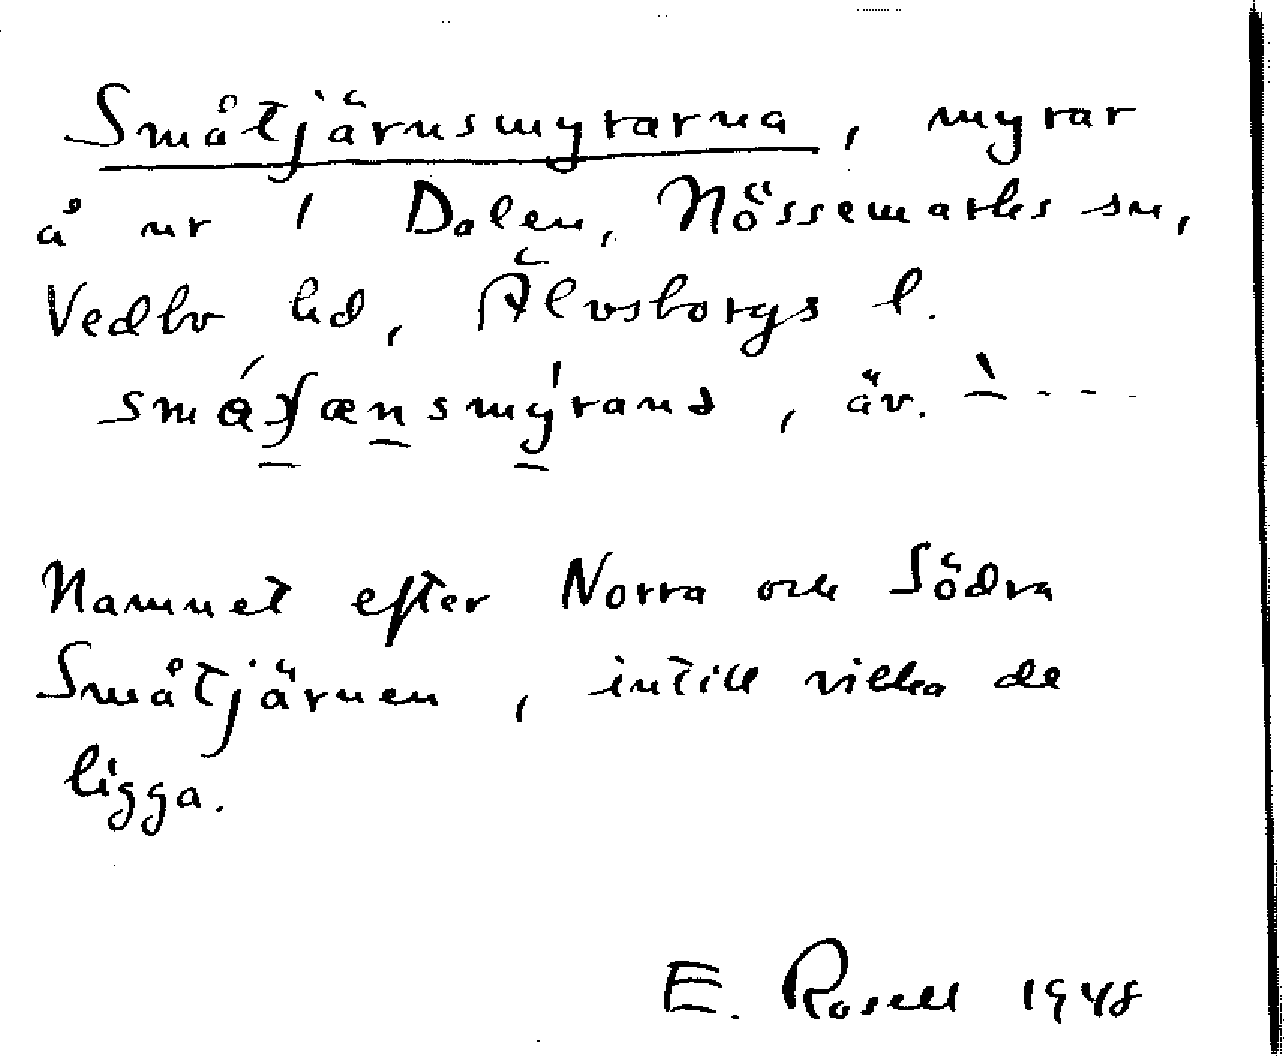 Småtjärnsmyrarna, myrar
å nr 1 Dalen, Nössemarks sn,
Vedbo hd, Älvsborgs l.
äv. \- - - -
Namnet efter Norra och Södra
Småtjärnen, intill vilka de
ligga.
E. Rosell 1948